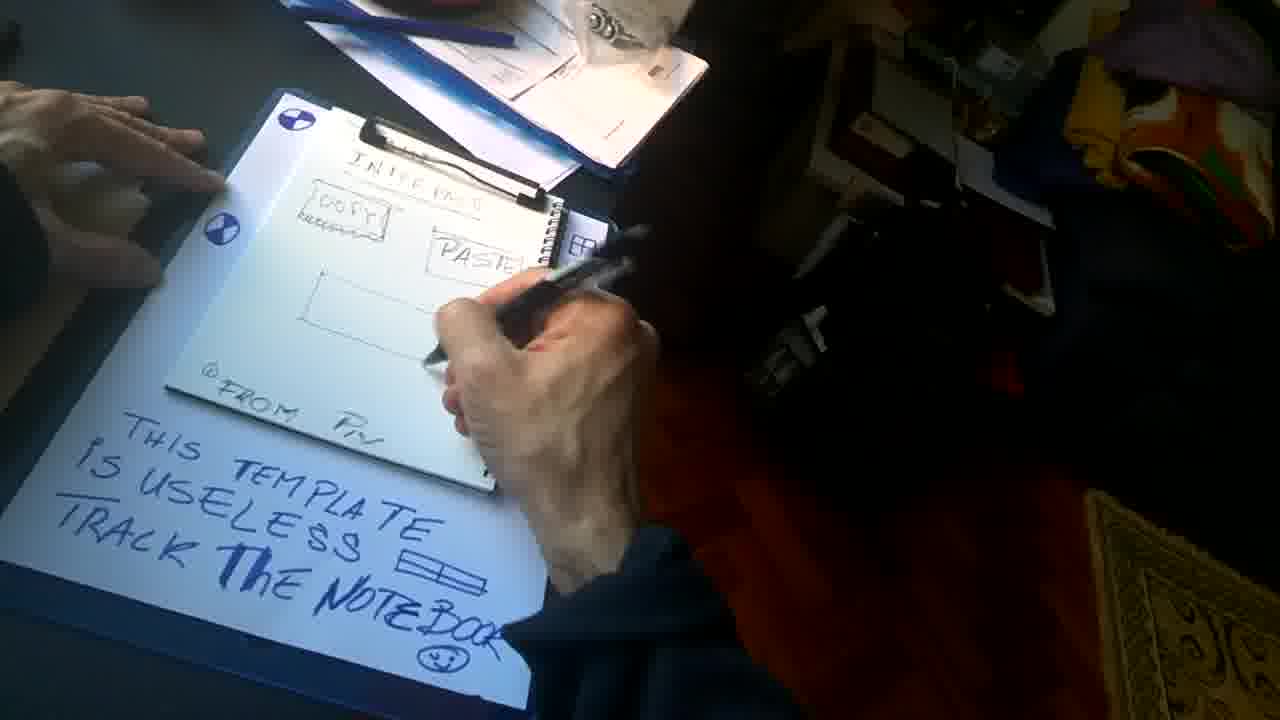 COPY
PASTE
① FROM PIN
THIS TEMPLATE
iS USELESS
TRACK ThE NOTEBOOK